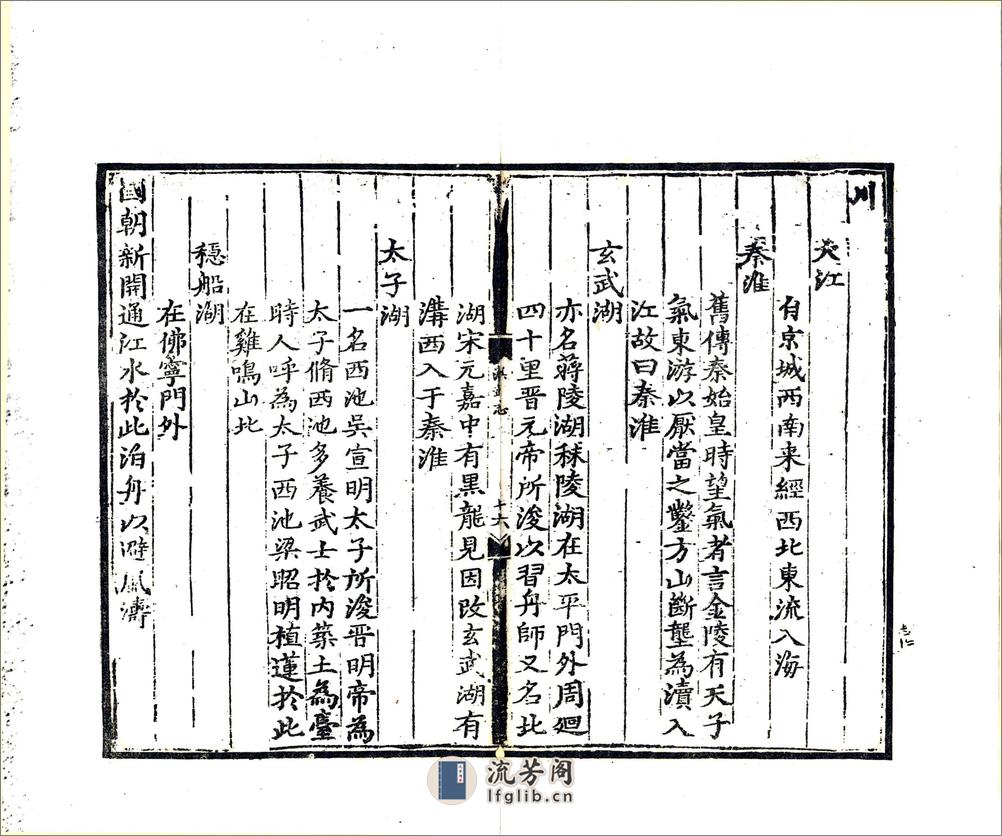 川
大江
自京城西南来經西北東流入海
秦淮
舊傳秦始皇時望氣者言金陵有天子
氣東游以厭當之鑿方山斷壟為瀆入
江故曰秦淮
玄武湖
亦名蔣陵湖秣陵湖在太平門外周廻
四十里晋元帝所浚以習舟師又名北
湖宋元嘉中有黒龍見因改玄武湖有
溝西入于秦淮
太子湖
一名西池吳宣明太子所浚晋明帝為
太子脩西池多養武士於内築土為臺
時人呼為太子西池梁昭明植蓮於此
在雞鳴山北
穏船湖
在佛寧門外
國朝新開通江水於此泊舟以避風濤
十六
流芳阁
lfglib.cn